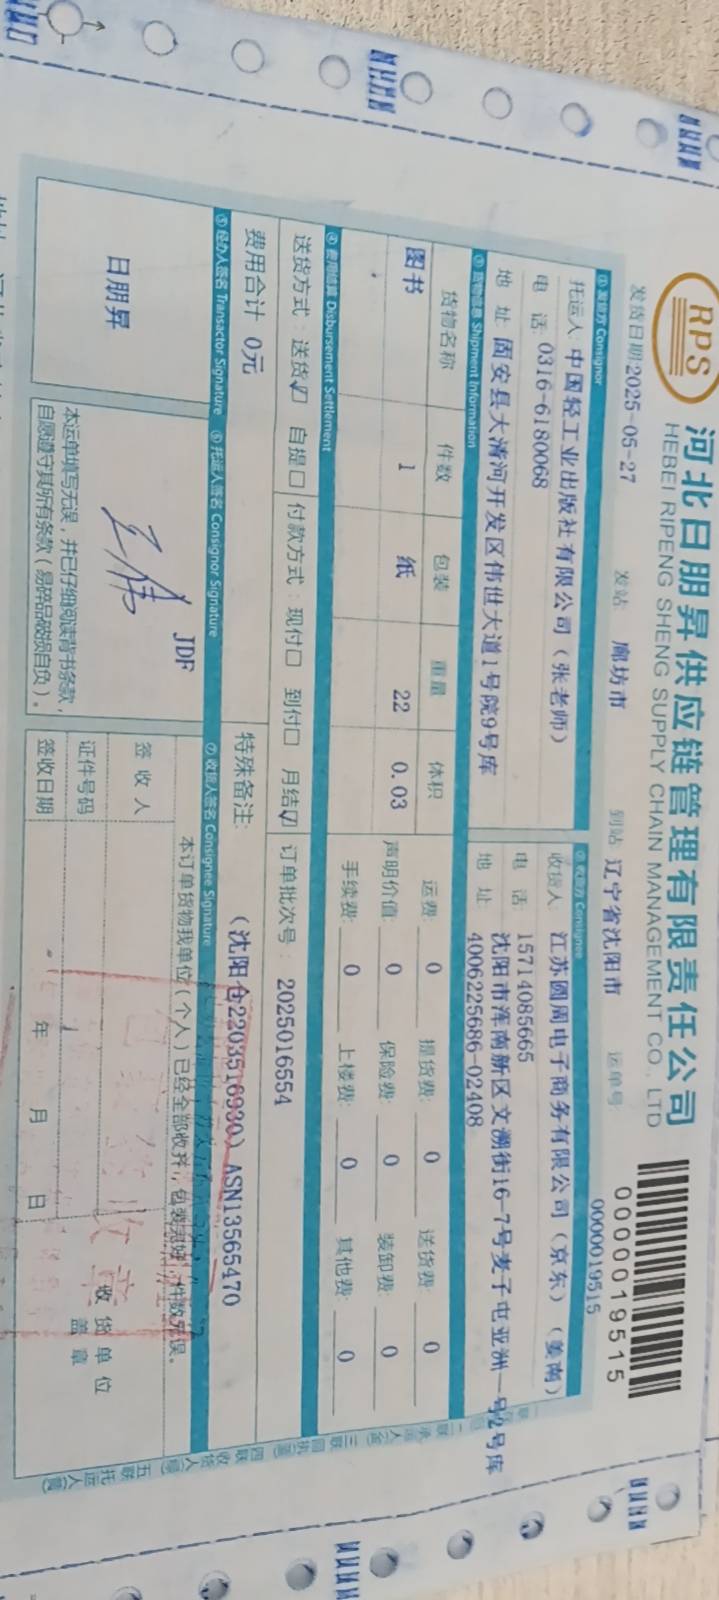 RPS
河北日朋昇供应链管理有限责任公司
HEBEI RIPENG SHENG SUPPLY CHAIN MANAGEMENT CO., LTD
0000019515
发货日期:2025-05-27 发站: 廊坊市 到站: 辽宁省沈阳市 运单号: 0000019515
① 发货方 Consignor
托运人: 中国轻工业出版社有限公司（张老师）
电 话: 0316-6180068
地 址: 固安县大清河开发区伟世大道1号院9号库
② 收货方 Consignee
收货人: 江苏圆周电子商务有限公司（京东）（姜南）
电 话: 15714085665
地 址: 沈阳市浑南新区文溯街16-7号麦子屯亚洲一号2号库
4006225686-02408
③ 货物信息 Shipment Information
货物名称 件数 包装 重量 体积
图书 1 纸 22 0.03
运费: 0 提货费: 0 送货费: 0
声明价值: 0 保险费: 0 装卸费: 0
手续费: 0 上楼费: 0 其他费: 0
④ 费用结算 Disbursement Settlement
送货方式: 送货☑ 自提□ 付款方式: 现付□ 到付□ 月结☑ 订单批次号: 2025016554
费用合计 0元 特殊备注: （沈阳仓2203516930）ASN13565470
⑤ 经办人签名 Transactor Signature
日朋昇
⑥ 托运人签名 Consignor Signature
JDF
本运单填写无误，并已仔细阅读背书条款，
自愿遵守其所有条款（易碎品破损自负）。
⑦ 收货人签名 Consignee Signature
本订单货物我单位（个人）已经全部收齐，包装完好，件数无误。
签 收 人
证件号码
签收日期 年 月 日
收货单位
盖 章